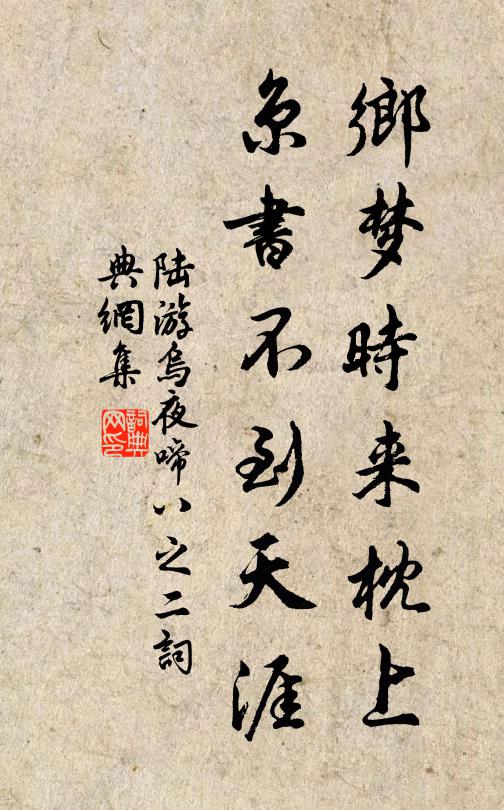 鄉梦時来枕上
京書不到天涯
陆游烏夜啼八之二詞
典網集
詞典网印